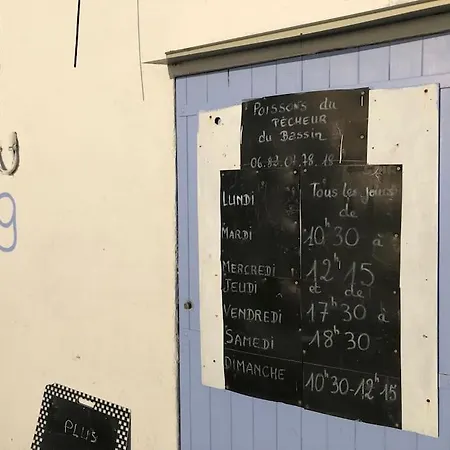 Poissons du
PÊCHEUR
du Bassin
06.82.04.78.19
LUNDI
MARDI
MERCREDI
JEUDI
VENDREDI
SAMEDI
DIMANCHE
Tous les jours
de
10h30 à
12h15
et de
17h30 à
18h30
10h30-12h15
9
PLUS